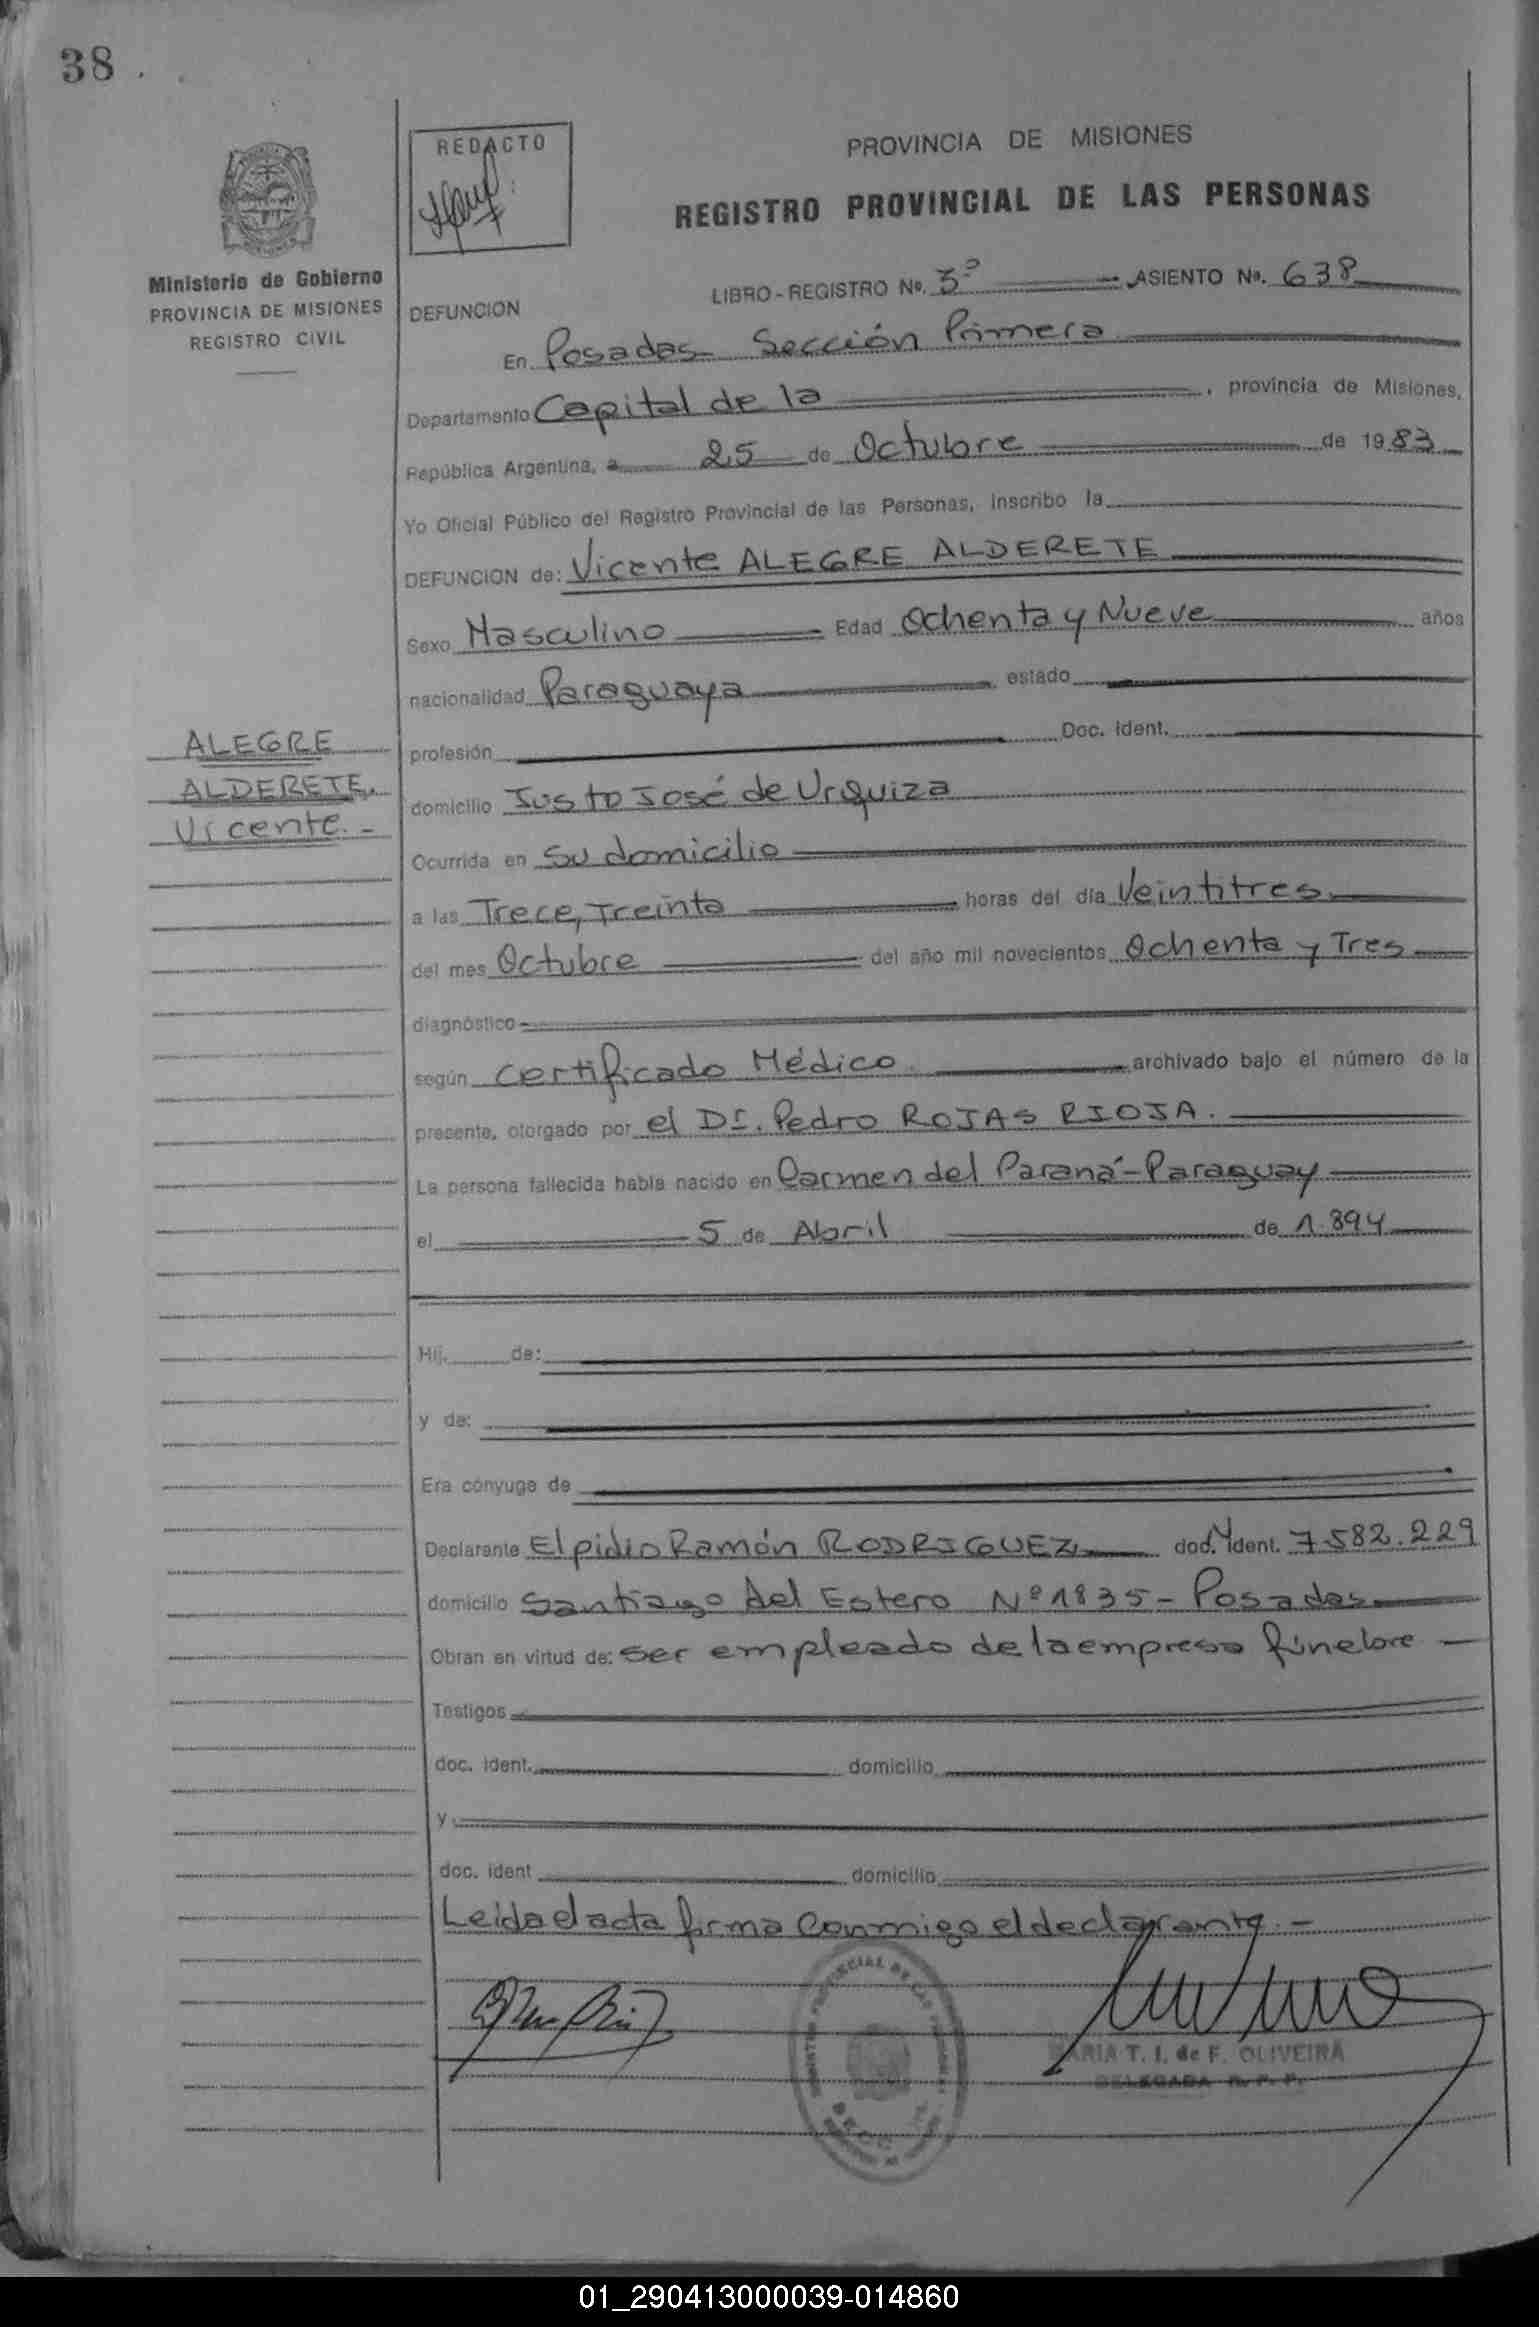 38
REDACTO
PROVINCIA DE MISIONES
REGISTRO PROVINCIAL DE LAS PERSONAS
Ministerio de Gobierno
PROVINCIA DE MISIONES
REGISTRO CIVIL
LIBRO-REGISTRO No. 3º ASIENTO No. 638
DEFUNCION
En Posadas Sección Primera
Departamento Capital de la , provincia de Misiones,
República Argentina, a 25 de Octubre de 1983
Yo Oficial Público del Registro Provincial de las Personas, inscribo la
DEFUNCION de: Vicente ALEGRE ALDERETE
Sexo Masculino Edad Ochenta y Nueve años
nacionalidad Paraguaya estado
ALEGRE
ALDERETE,
Vicente.-
profesión Doc. Ident.
domicilio Justo José de Urquiza
Ocurrida en su domicilio
a las Trece, Treinta horas del día Veintitres
del mes Octubre del año mil novecientos Ochenta y Tres
diagnóstico
según Certificado Médico. archivado bajo el número de la
presente, otorgado por el Dr. Pedro ROJAS RIOJA.
La persona fallecida había nacido en Carmen del Paraná-Paraguay
el 5 de Abril de 1.894
Hij. de:
y de:
Era cónyuge de
Declarante Elpidio Ramón RODRIGUEZ doc. Ident. 7.582.229
domicilio Santiago del Estero Nº 1835 - Posadas
Obran en virtud de: ser empleado de la empresa fúnebre
Testigos
doc. Ident. domicilio
y
doc. ident domicilio
Leida el acta firma conmigo el declarante.-
MARIA T. I. de F. OLIVEIRA
DELEGADA R. P. P.
01_290413000039-014860